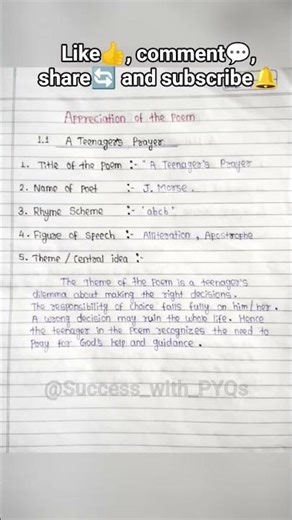 Like👍, comment💬,
share🔄 and subscribe🔔
Appreciation of the Poem
1.1 A Teenager's Prayer
1. Title of the Poem :- "A Teenager's Prayer
2. Name of Poet :- J. Morse.
3. Rhyme Scheme :- 'abcb'
4. Figure of Speech :- Aliteration, Apostrophe
5. Theme / Central idea :-
The Theme of the Poem is a teenager's
dilemma about making the right decisions.
The responsibility of choice falls fully on him/her.
A wrong decision may ruin the whole life. Hence
the teenager in the Poem recognizes the need to
Pray for God's help and guidance.
@Success_with_PYQs